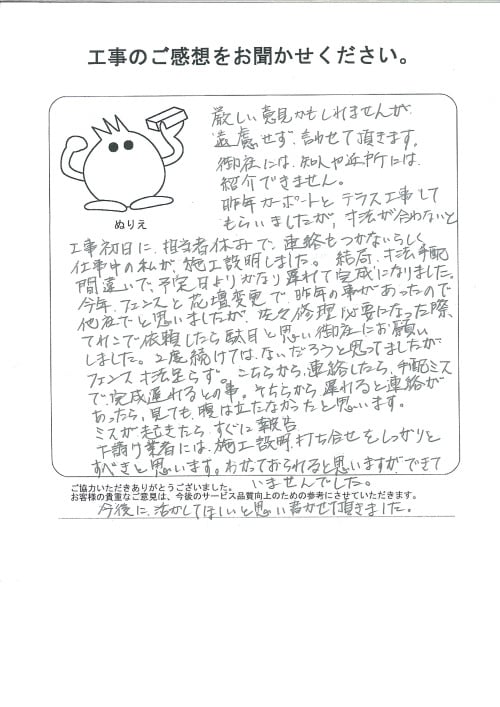 工事のご感想をお聞かせください。
厳しい意見かもしれませんが
遠慮せず、言わせて頂きます。
御社には、知人や近所には、
紹介できません。
昨年カーポートとテラス工事して
もらいましたが、寸法が合わないと
ぬりえ
工事初日に、担当者休みで、連絡もつかないらしく
仕事中の私が、施工説明しました。結局、寸法、手配
間違いで、予定日よりかなり遅れて完成になりました。
今年、フェンスと花壇変更で、昨年の事があったので
他社でと思いましたが、修理必要になった際、
てれこで依頼したら駄目と思い御社にお願い
しました。2度続けては、ないだろうと思ってましたが
フェンス寸法足らず。こちらから、連絡したら、手配ミス
で、完成遅れるとの事。そちらから、遅れると連絡が
あったら、見ても、腹は立たなかったと思います。
ミスが起きたら、すぐに報告
下請け業者には、施工説明、打ち合せをしっかりと
すべきと思います。わかっておられると思いますが、できて
いませんでした。
ご協力いただきありがとうございました。
お客様の貴重なご意見は、今後のサービス品質向上のための参考にさせていただきます。
今後に、活かしてほしいと思い書かせて頂きました。